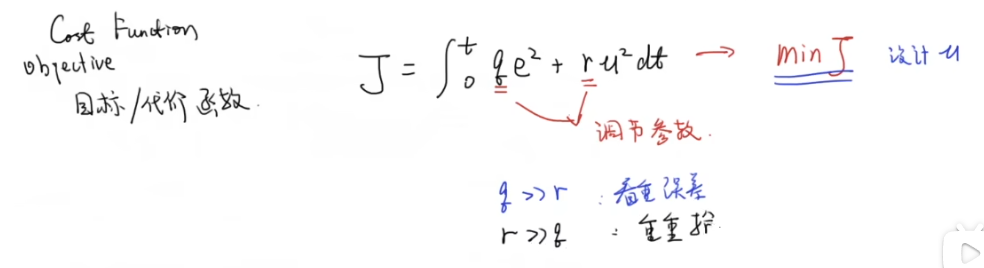 Cost Function
Objective
目标/代价函数.
J = ∫₀ᵗ qe² + ru² dt → min J 设计 u
调节参数.
q >> r : 看重误差
r >> q : 重重